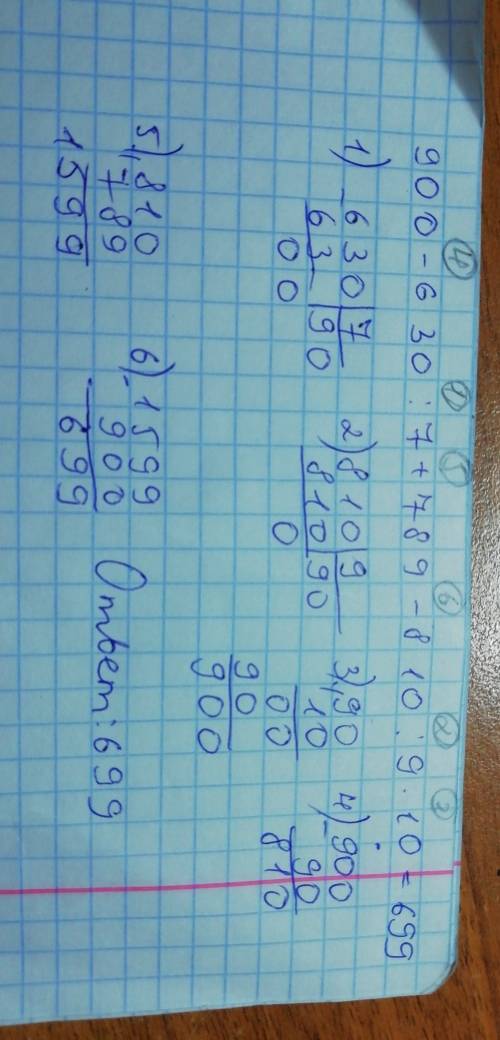 ④ ① ⑤ ⑥ ② ③
900 - 630 : 7 + 789 - 810 : 9 · 10 = 699
1) - 630 | 7
63 | 90
00
2) 810 | 9
810 | 90
0
3) 90
10
00
90
900
4) - 900
90
810
5) 810
789
1599
6) - 1599
900
699
Ответ: 699